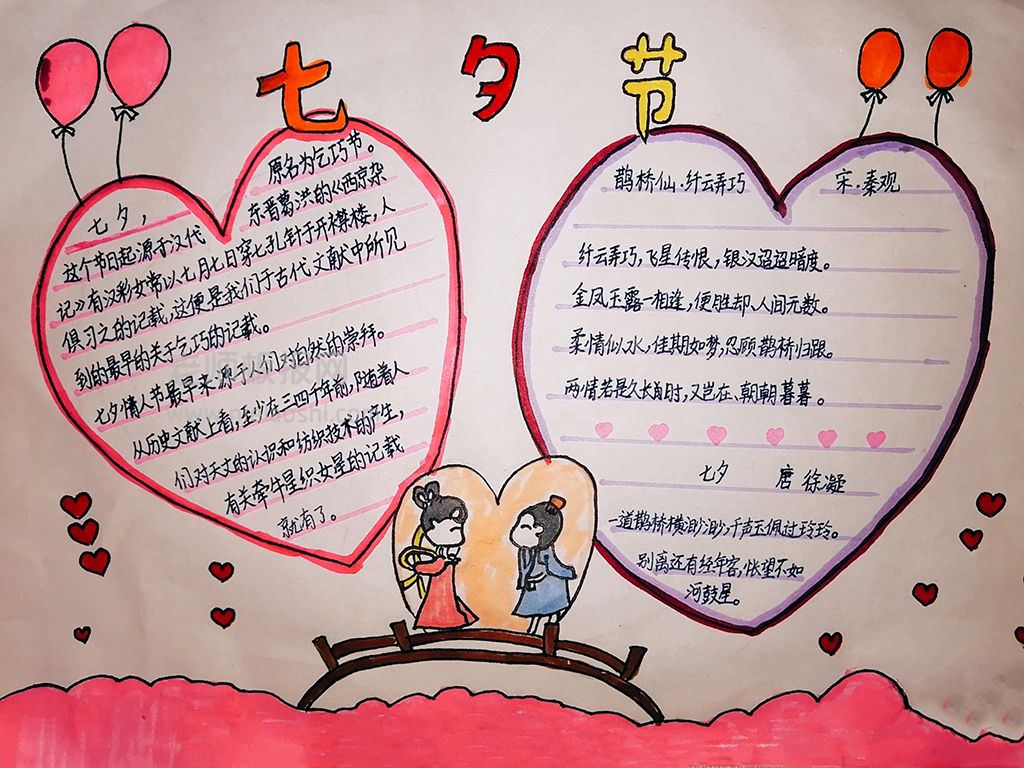 七夕节
七夕，
原名为乞巧节。
这个节日起源于汉代
东晋葛洪的《西京杂
记》有汉彩女常以七月七日穿七孔针于开襟楼，人
俱习之的记载，这便是我们于古代文献中所见
到的最早的关于乞巧的记载。
七夕情人节最早来源于人们对自然的崇拜。
从历史文献上看，至少在三四千年前，随着人
们对天文的认识和纺织技术的产生，
有关牵牛星织女星的记载
就有了。
鹊桥仙·纤云弄巧 宋·秦观
纤云弄巧，飞星传恨，银汉迢迢暗度。
金凤玉露一相逢，便胜却人间无数。
柔情似水，佳期如梦，忍顾鹊桥归路。
两情若是久长时，又岂在、朝朝暮暮。
七夕 唐 徐凝
一道鹊桥横渺渺，千声玉佩过玲玲。
别离还有经年客，怅望不如
河鼓星。